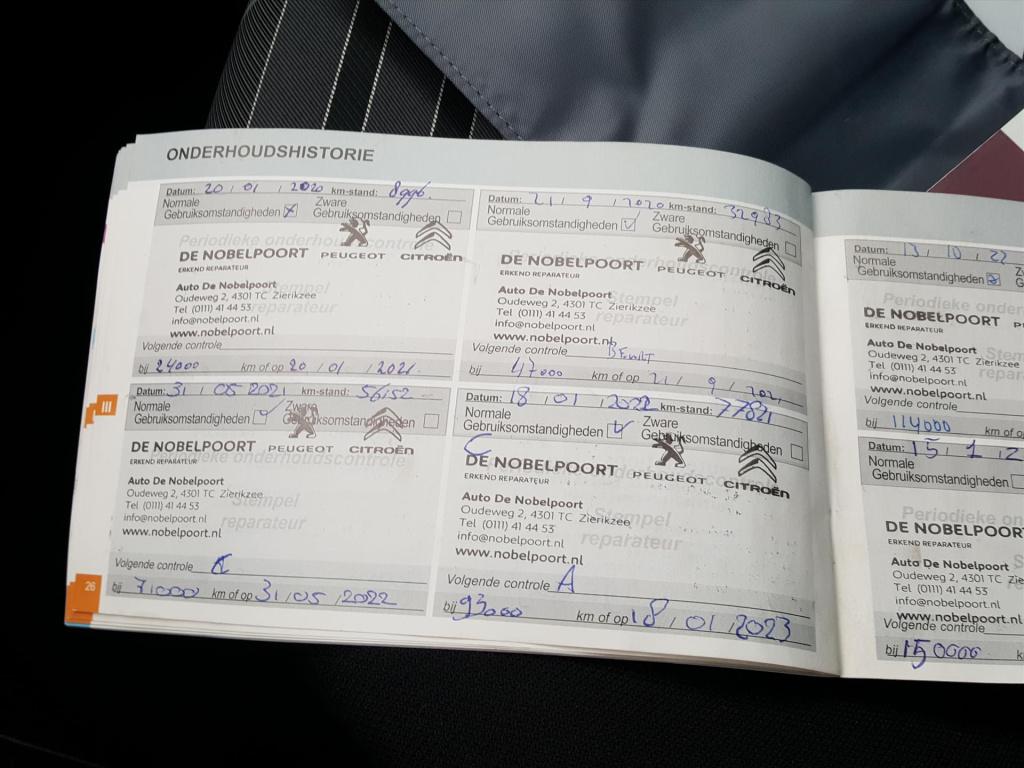 ONDERHOUDSHISTORIE
Datum: 20 / 01 / 2020 km-stand: 8996.
Normale Gebruiksomstandigheden
Zware Gebruiksomstandigheden
Periodieke onderhoudscontrole
DE NOBELPOORT PEUGEOT CITROËN
ERKEND REPARATEUR
Auto De Nobelpoort
Stempel
Oudeweg 2, 4301 TC Zierikzee
reparateur
Tel (0111) 41 44 53
info@nobelpoort.nl
www.nobelpoort.nl
Volgende controle
bij 24000 km of op 20 / 01 / 2021.
Datum: 21 / 9 / 2020 km-stand: 32983
Normale Gebruiksomstandigheden
Zware Gebruiksomstandigheden
DE NOBELPOORT PEUGEOT CITROËN
ERKEND REPARATEUR
Auto De Nobelpoort
Stempel
Oudeweg 2, 4301 TC Zierikzee
reparateur
Tel (0111) 41 44 53
info@nobelpoort.nl
www.nobelpoort.nl
Volgende controle
bij 47000 km of op 21 / 9 / 2021
Datum: 31 / 05 / 2021 km-stand: 56152
Normale Gebruiksomstandigheden
Zware Gebruiksomstandigheden
DE NOBELPOORT PEUGEOT CITROËN
ERKEND REPARATEUR
Periodieke onderhoudscontrole
Auto De Nobelpoort
Oudeweg 2, 4301 TC Zierikzee
Stempel
Tel (0111) 41 44 53
reparateur
info@nobelpoort.nl
www.nobelpoort.nl
Volgende controle C
bij 71000 km of op 31 / 05 / 2022
Datum: 18 / 01 / 2022 km-stand: 77821
Normale Gebruiksomstandigheden
Zware Gebruiksomstandigheden
C
DE NOBELPOORT PEUGEOT CITROËN
ERKEND REPARATEUR
Auto De Nobelpoort
Oudeweg 2, 4301 TC Zierikzee
Stempel
Tel (0111) 41 44 53
reparateur
info@nobelpoort.nl
www.nobelpoort.nl
Volgende controle A
bij 93000 km of op 18 / 01 / 2023
III
26
Datum: 13 / 10 / 22
Normale
Gebruiksomstandigheden
Periodieke onder
DE NOBELPOORT
ERKEND REPARATEUR
Auto De Nobelpoort
Oudeweg 2, 4301 TC Zierikzee
Tel (0111) 41 44 53
info@nobelpoort.nl
www.nobelpoort.nl
Volgende controle
bij 114000 km of o
Datum: 15 / 1 / 2
Normale
Gebruiksomstandigheden
Periodieke onder
DE NOBELPOORT
ERKEND REPARATEUR
Auto De Nobelpoort
Oudeweg 2, 4301 TC Zierikzee
Tel (0111) 41 44 53
info@nobelpoort.nl
www.nobelpoort.nl
Volgende controle
bij 150000